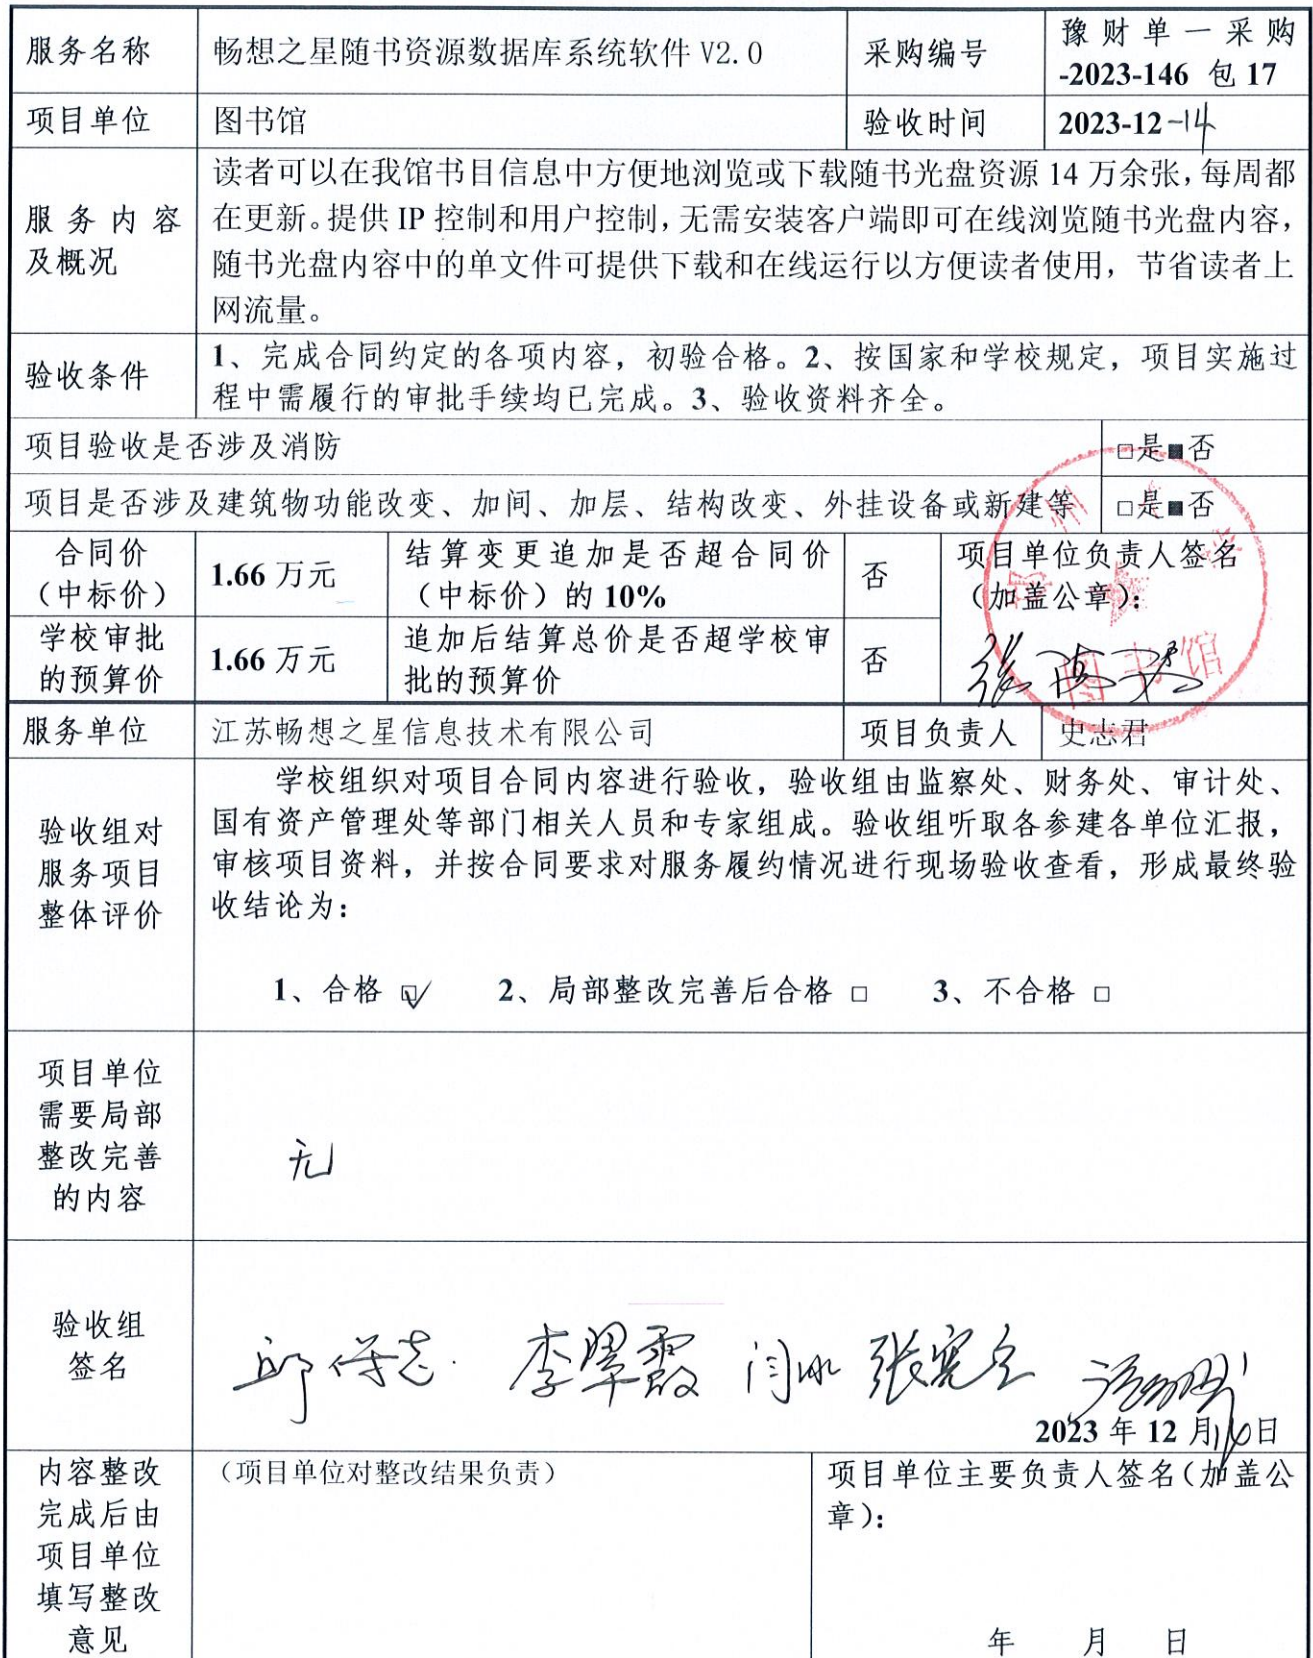 服务名称
畅想之星随书资源数据库系统软件 V2.0
采购编号
豫财单一采购
-2023-146 包 17
项目单位
图书馆
验收时间
2023-12-14
服务内容
及概况
读者可以在我馆书目信息中方便地浏览或下载随书光盘资源 14 万余张，每周都
在更新。提供 IP 控制和用户控制，无需安装客户端即可在线浏览随书光盘内容，
随书光盘内容中的单文件可提供下载和在线运行以方便读者使用，节省读者上
网流量。
验收条件
1、完成合同约定的各项内容，初验合格。2、按国家和学校规定，项目实施过
程中需履行的审批手续均已完成。3、验收资料齐全。
项目验收是否涉及消防
□是■否
项目是否涉及建筑物功能改变、加间、加层、结构改变、外挂设备或新建等
□是■否
合同价
（中标价）
1.66 万元
结算变更追加是否超合同价
（中标价）的 10%
否
项目单位负责人签名
（加盖公章）：
学校审批
的预算价
1.66 万元
追加后结算总价是否超学校审
批的预算价
否
图书馆
服务单位
江苏畅想之星信息技术有限公司
项目负责人
史志君
验收组对
服务项目
整体评价
学校组织对项目合同内容进行验收，验收组由监察处、财务处、审计处、
国有资产管理处等部门相关人员和专家组成。验收组听取各参建各单位汇报，
审核项目资料，并按合同要求对服务履约情况进行现场验收查看，形成最终验
收结论为：
1、合格 ☑ 2、局部整改完善后合格 □ 3、不合格 □
项目单位
需要局部
整改完善
的内容
无
验收组
签名
李翠霞 闫冰 张宪立
2023 年 12 月 14 日
内容整改
完成后由
项目单位
填写整改
意见
（项目单位对整改结果负责）
项目单位主要负责人签名（加盖公
章）：
年 月 日